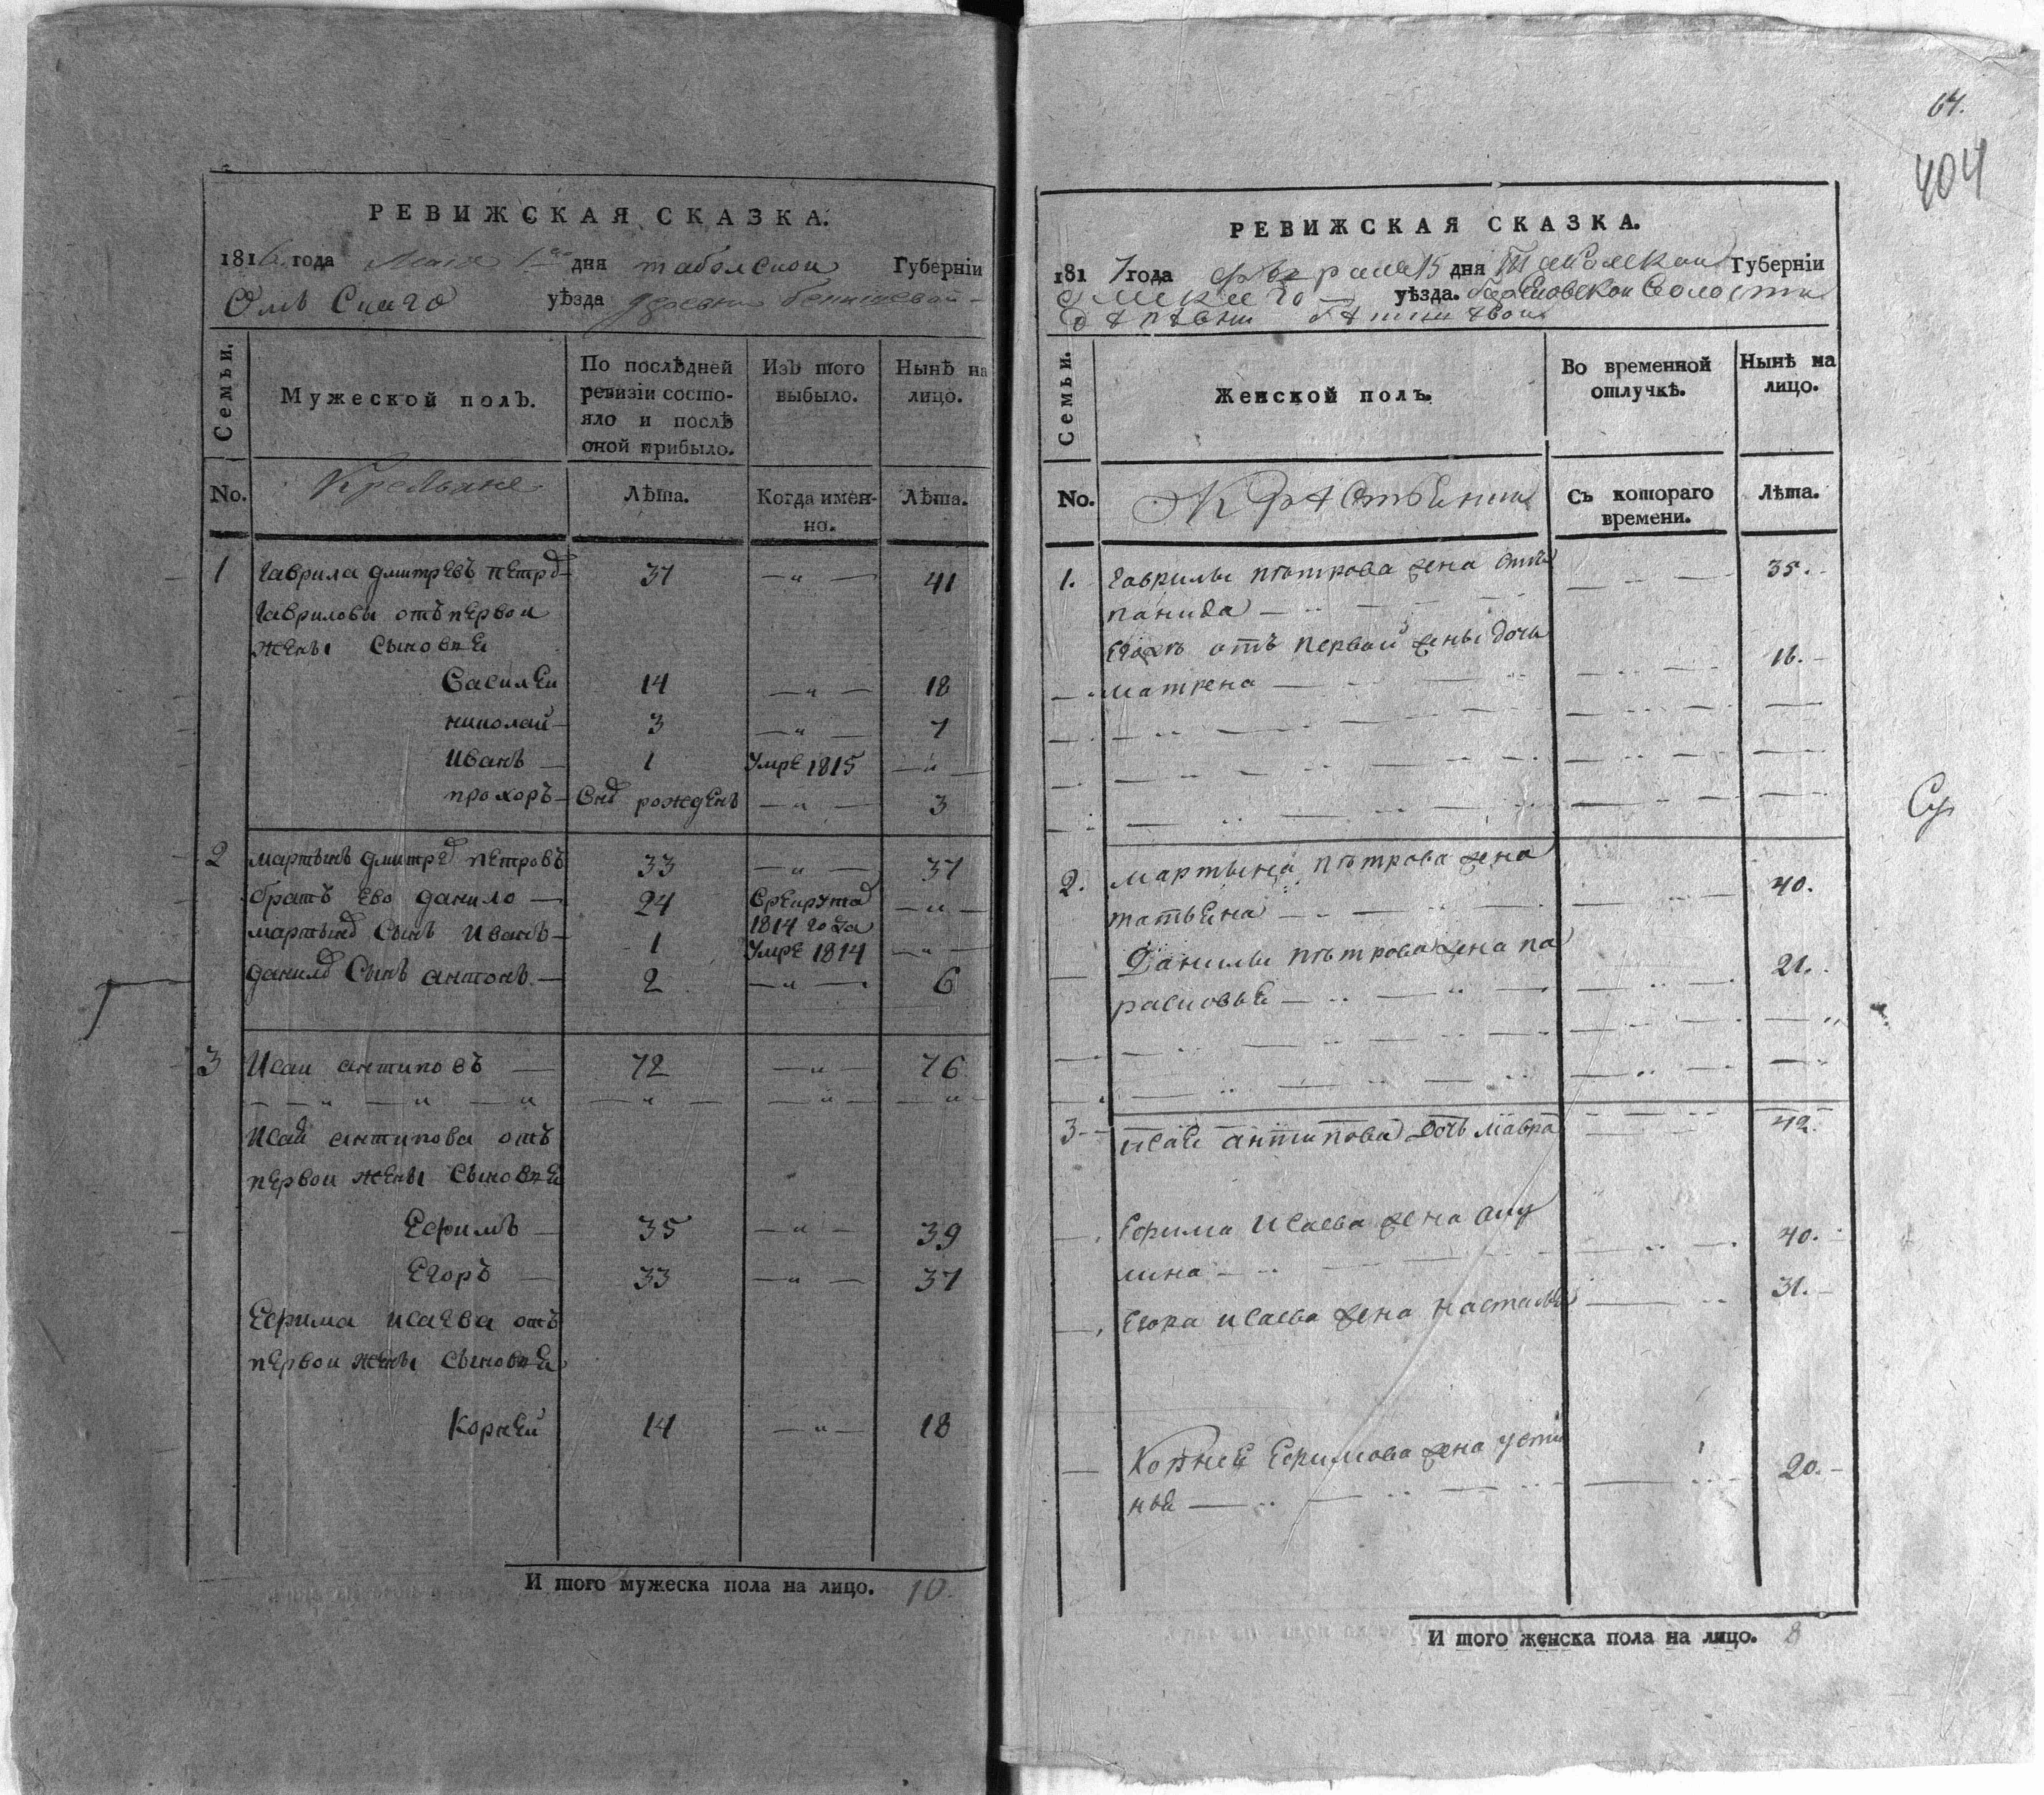 РЕВИЖСКАЯ СКАЗКА.
1816 года Маия 1го дня таболской Губерніи
Омъ Скаго уѣзда деревни
Семьи.
Мужеской полъ.
По послѣдней ревизіи состояло и послѣ оной прибыло.
Изъ того выбыло.
Нынѣ на лицо.
No.
Крестьяне
Лѣта.
Когда именно.
Лѣта.
1 Гаврила дмитрЕвъ пЕтро 37 — " — 41
Гавриловы отъ пЕрвои
жЕны Сыновъя
Василеи 14 — " — 18
николай — 3 — " — 7
Иванъ — 1 УмрЕ 1815 — " —
прохоръ — рождЕнъ — " — 3
2 мартынъ дмитрЕ пЕтровъ 33 — " — 37
братъ Ево данило — 24 — " —
1814 года
Сынъ Иванъ — 1 УмрЕ 1814 — " —
данило Сынъ антонъ — 2 — " — 6
3 Исаи антиповъ — 72 — " — 76
— — " — " — " — " — — " — — " —
Исаи антипова отъ
пЕрвои жЕны Сыновъя
Ефимъ — 35 — " — 39
Егоръ — 33 — " — 37
Ефима исаЕва отъ
пЕрвои жЕны Сыновъя
Корнеи 14 — " — 18
И того мужеска пола на лицо. 10.
64.
404
РЕВИЖСКАЯ СКАЗКА.
1817 года 15 дня Таболскои Губерніи
Омскаго уѣзда. Волости
Семьи.
Женской полъ.
Во временной отлучкѣ.
Нынѣ на лицо.
No.
Съ котораго времени.
Лѣта.
1. Гаврилы пѣтрова жена 35.
панида
Егожъ отъ первой жены дочь
матрена — 16.
2. мартына пѣтрова жена
татьяна 40.
Данилы пѣтрова жена па
расковья 21.
3 — исаи антипова дочь мавра 42
Ефима Исаева жена аку
лина — 40.
Егора исаева жена настасья 31.
Корнея Ефимова жена усти
нья — 20.
И того женска пола на лицо. 8